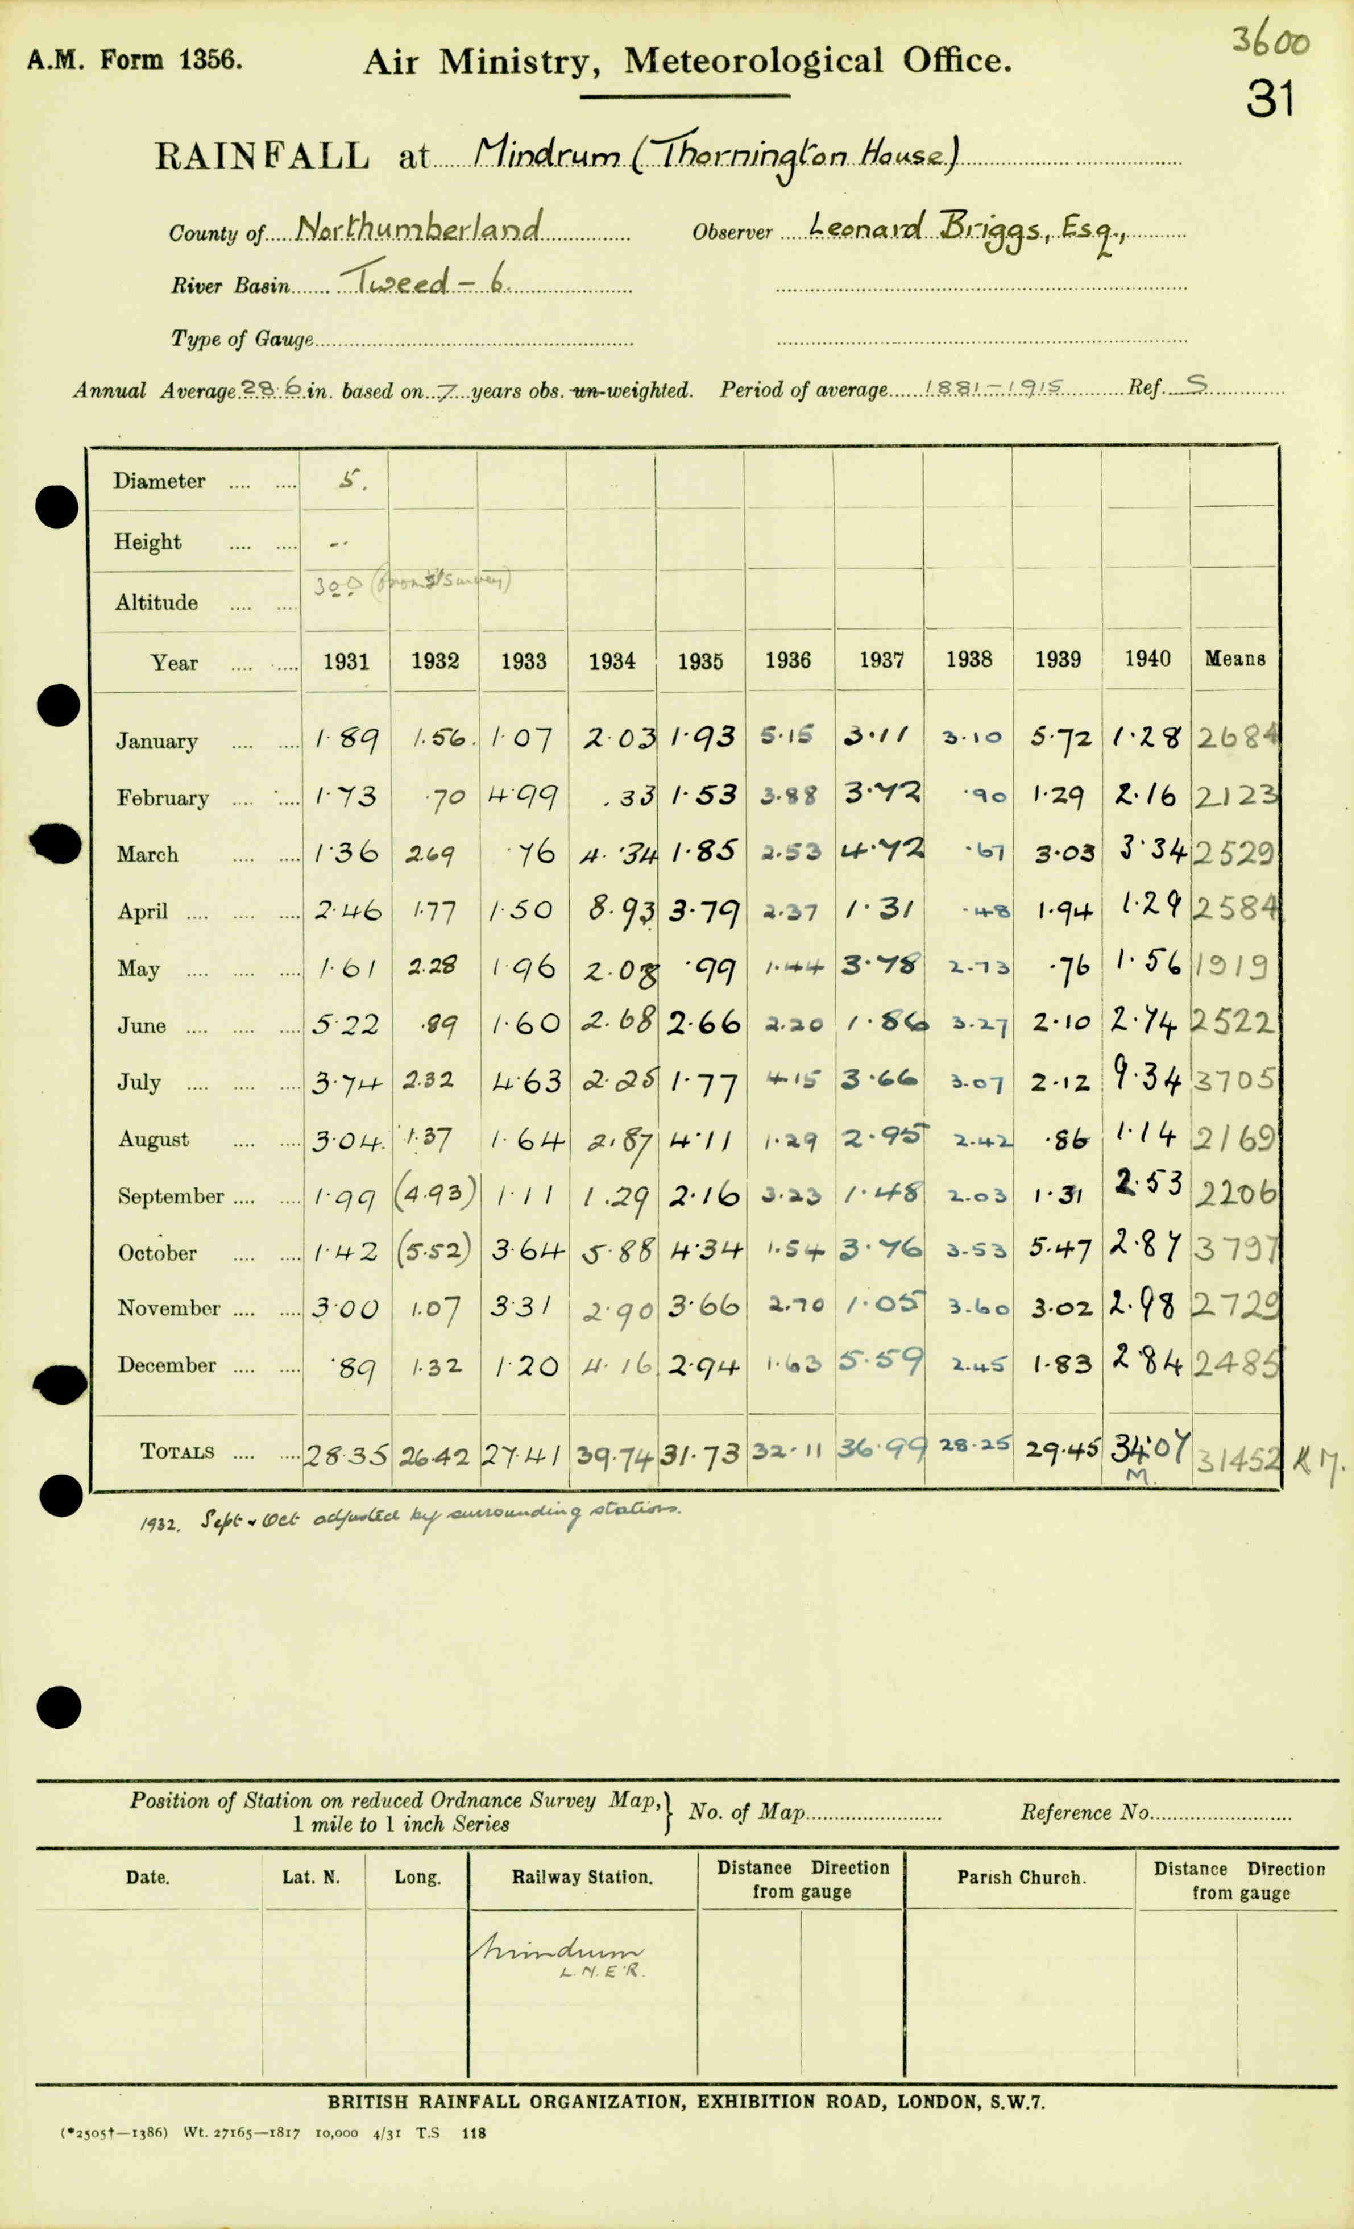 3600
A.M. Form 1356.
Air Ministry, Meteorological Office.
31
RAINFALL at Mindrum (Thornington House)
County of Northumberland Observer Leonard Briggs, Esq.,
River Basin Tweed - 6.
Type of Gauge
Annual Average 28.6 in. based on 7 years obs. un-weighted. Period of average 1881-1915 Ref. S
Diameter 5.
Height --
Altitude 300 (from 1" survey)
Year 1931 1932 1933 1934 1935 1936 1937 1938 1939 1940 Means
January 1.89 1.56 1.07 2.03 1.93 5.15 3.11 3.10 5.72 1.28 2684
February 1.73 .70 4.99 .33 1.53 3.88 3.72 .90 1.29 2.16 2123
March 1.36 2.69 .76 4.34 1.85 2.53 4.72 .67 3.03 3.34 2529
April 2.46 1.77 1.50 8.93 3.79 2.37 1.31 .48 1.94 1.29 2584
May 1.61 2.28 1.96 2.08 .99 1.44 3.78 2.73 .76 1.56 1919
June 5.22 .89 1.60 2.68 2.66 2.20 1.86 3.27 2.10 2.74 2522
July 3.74 2.32 4.63 2.25 1.77 4.15 3.66 3.07 2.12 9.34 3705
August 3.04 1.37 1.64 2.87 4.11 1.29 2.95 2.42 .86 1.14 2169
September 1.99 (4.93) 1.11 1.29 2.16 3.23 1.48 2.03 1.31 2.53 2206
October 1.42 (5.52) 3.64 5.88 4.34 1.54 3.76 3.53 5.47 2.87 3797
November 3.00 1.07 3.31 2.90 3.66 2.70 1.05 3.60 3.02 2.98 2729
December .89 1.32 1.20 4.16 2.94 1.63 5.59 2.45 1.83 2.84 2485
TOTALS 28.35 26.42 27.41 39.74 31.73 32.11 36.99 28.25 29.45 34.07 31452
M.
1932. Sept & Oct adjusted by surrounding stations.
Position of Station on reduced Ordnance Survey Map,
1 mile to 1 inch Series } No. of Map Reference No.
Date. Lat. N. Long. Railway Station. Distance Direction from gauge Parish Church. Distance Direction from gauge
Mindrum
L.N.E.R.
BRITISH RAINFALL ORGANIZATION, EXHIBITION ROAD, LONDON, S.W.7.
(*2505†—1386) Wt. 27165—1817 10,000 4/31 T.S 118